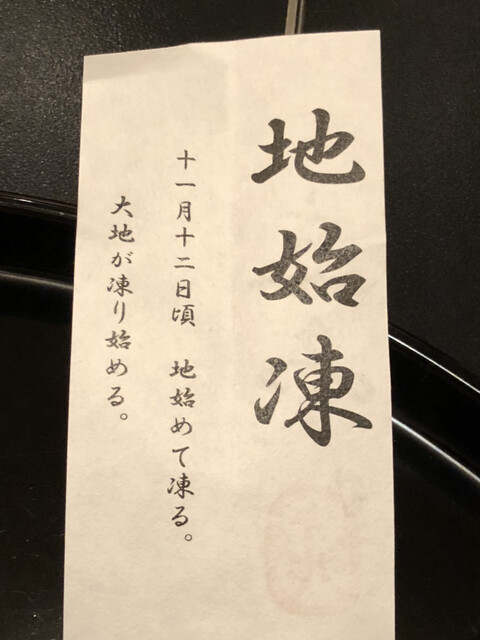 地始凍
十一月十二日頃　地始めて凍る。
大地が凍り始める。